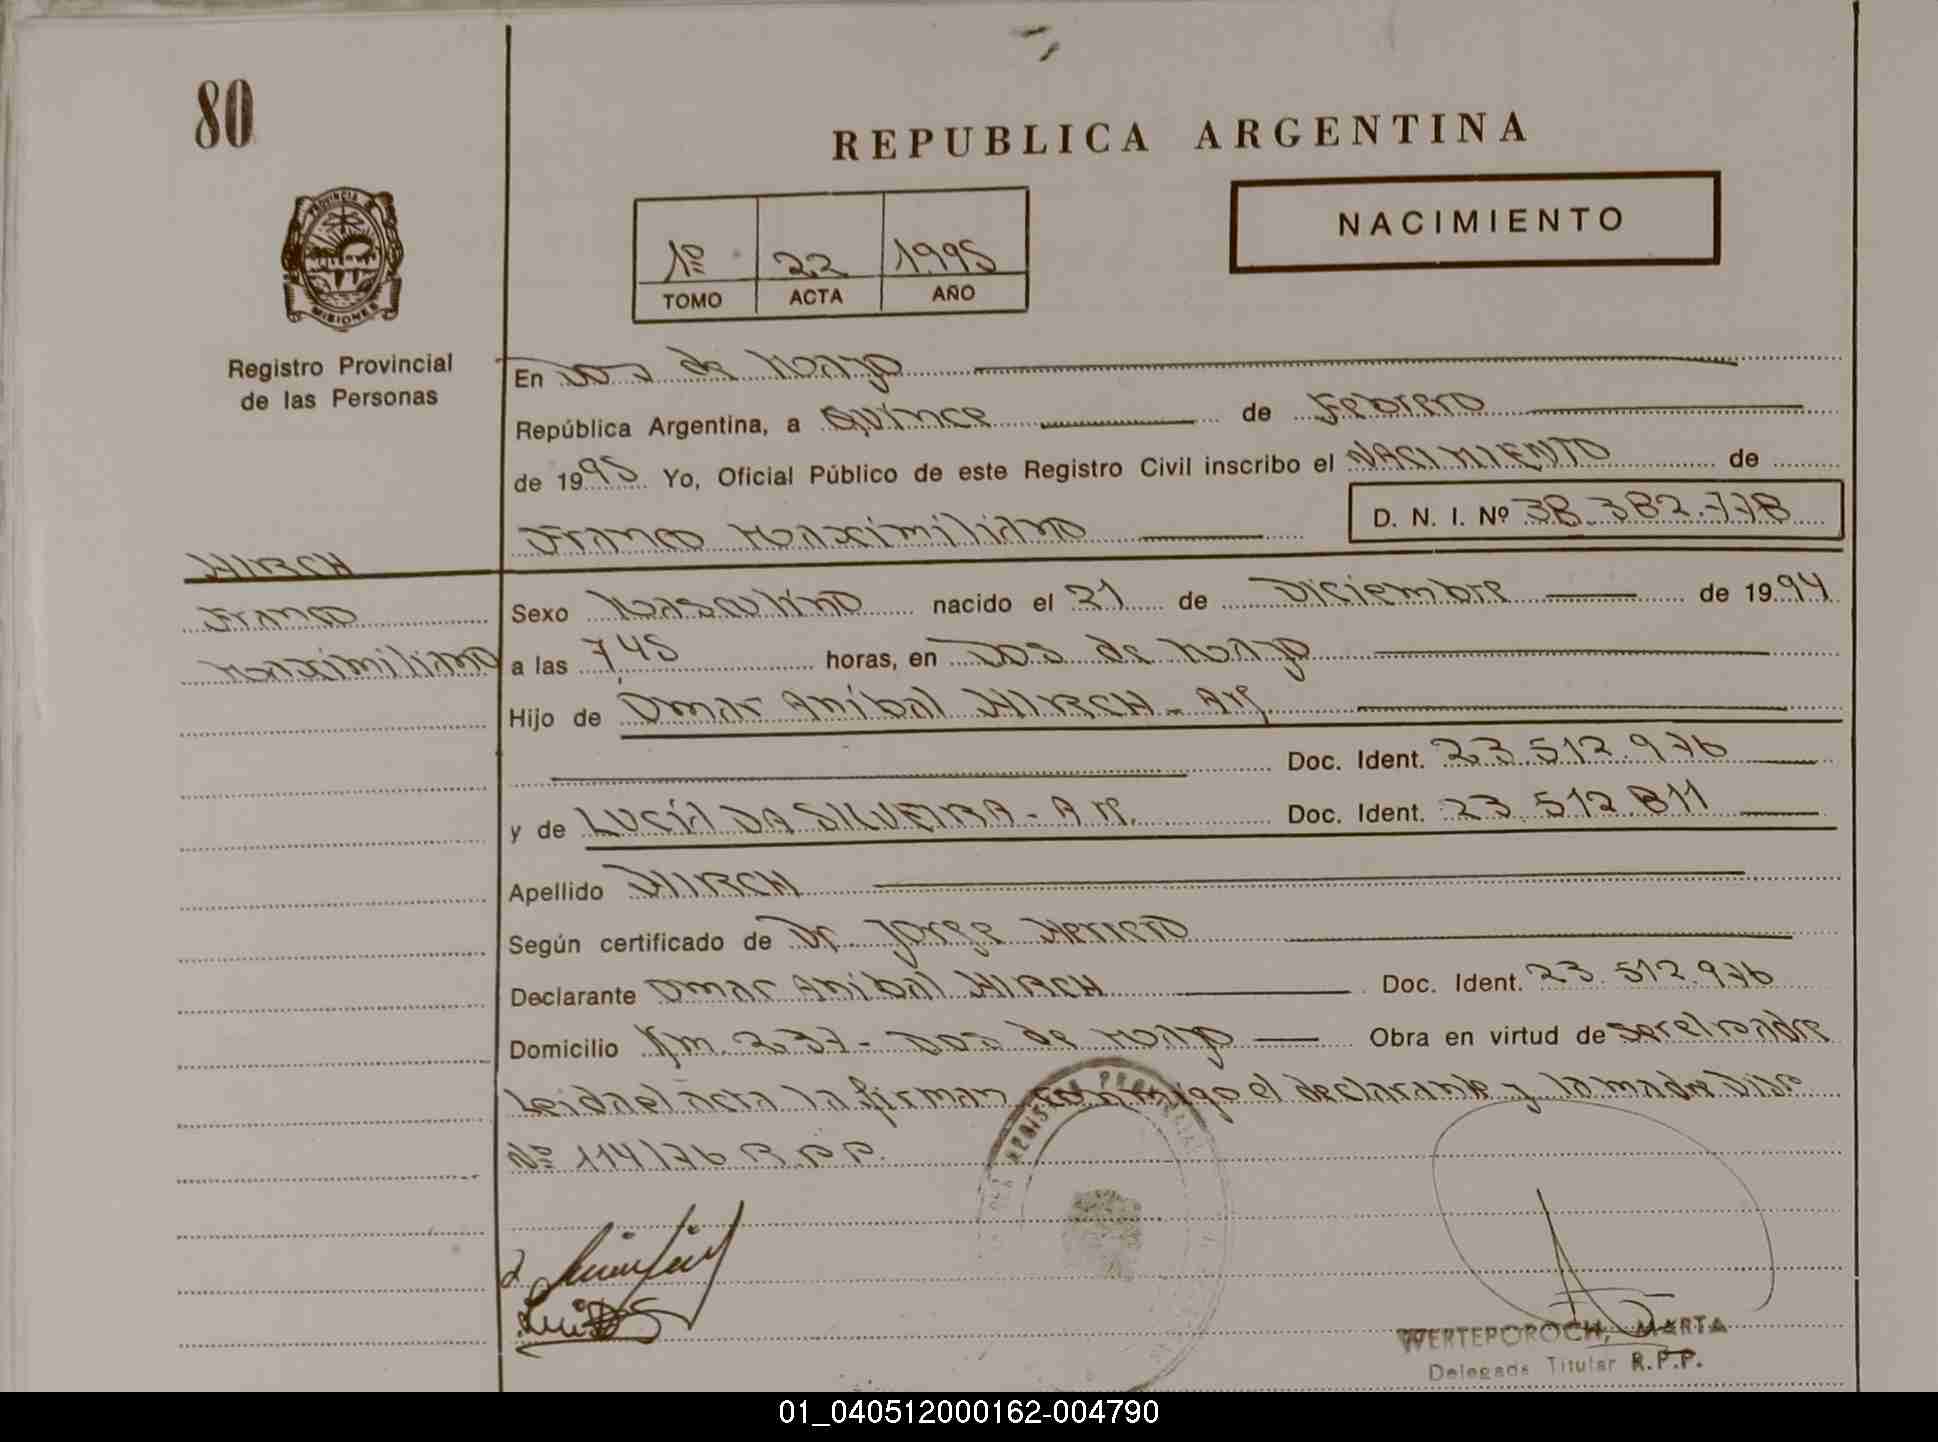 80
REPUBLICA ARGENTINA
NACIMIENTO
1º 22 1995
TOMO ACTA AÑO
PROVINCIA DE
MISIONES
Registro Provincial
de las Personas
En Dos de Mayo
República Argentina, a Quince de Febrero
de 1995 Yo, Oficial Público de este Registro Civil inscribo el NACIMIENTO de
Franco Maximiliano D. N. I. Nº 38.382.778
HIRCH
Franco
Maximiliano
Sexo Masculino nacido el 21 de Diciembre de 1994
a las 7,45 horas, en Dos de Mayo
Hijo de Omar Anibal HIRCH - Ar.
Doc. Ident. 23.512.976
y de LUCÍA DA SILVEIRA - Ar. Doc. Ident. 23.512.811
Apellido HIRCH
Según certificado de Dr. Jorge Herrero
Declarante Omar Anibal HIRCH Doc. Ident. 23.512.976
Domicilio Km. 237 - Dos de Mayo Obra en virtud de ser el padre
Leida el acta la firman conmigo el declarante y la madre Disp.
Nº 114/76 R.P.P.
REGISTRO PROVINCIAL
WERTEPOROCH, MARTA
Delegada Titular R.P.P.
01_040512000162-004790